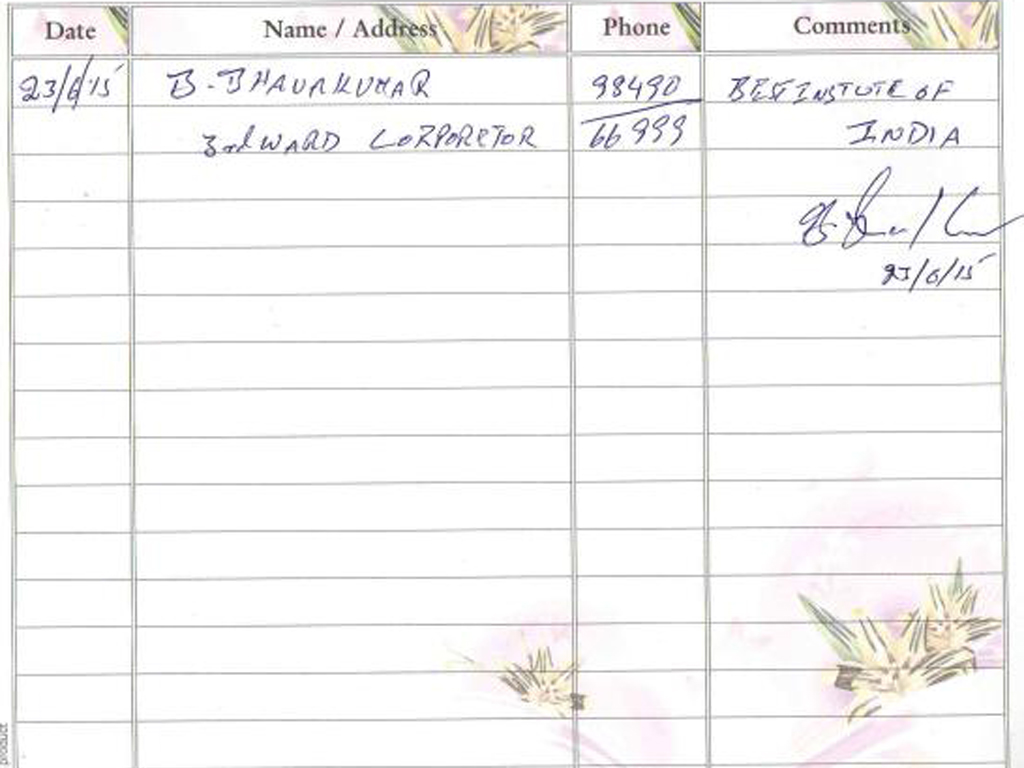 Date Name / Address Phone Comments
23/6/15 B. BHAVAKUMAR 98490 BEST INSTUTE OF
3rd WARD CORPORETOR 66999 INDIA
23/6/15